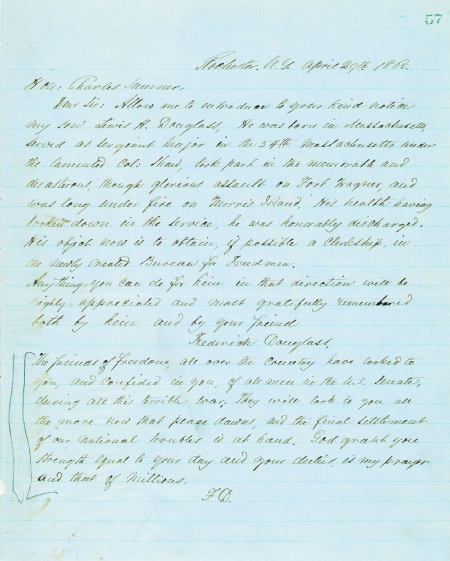 57
Rochester. N.Y. April 29th 1865.
Hon: Charles Sumner.
Dear Sir: Allow me to introduce to your kind notice
my son Lewis H. Douglass, He was born in Massachusetts,
served as sergeant Major in the 54th Massachusetts under
the lamented Col: Shaw, took part in the memorable and
disasterous, though glorious assault on Fort Wagner, and
was long under fire on Morris Island. His health having
broken down in the service, he was honorably discharged.
His object now is to obtain, if possible a Clerkship, in
the newly created Bureau for Freedmen.
Anything you can do for him in that direction will be
highly appreciated and most gratefully remembered
both by him and by your friend
Frederick Douglass,
The friends of freedom, all over the Country have looked to
you, and confided in you, of all men in the U.S. Senate,
during all this terrible war. They will look to you all
the more now that peace dawns, and the final settlement
of our national troubles is at hand. God grant you
strength equal to your day and your duties, is my prayer
and that of millions.
F.D.